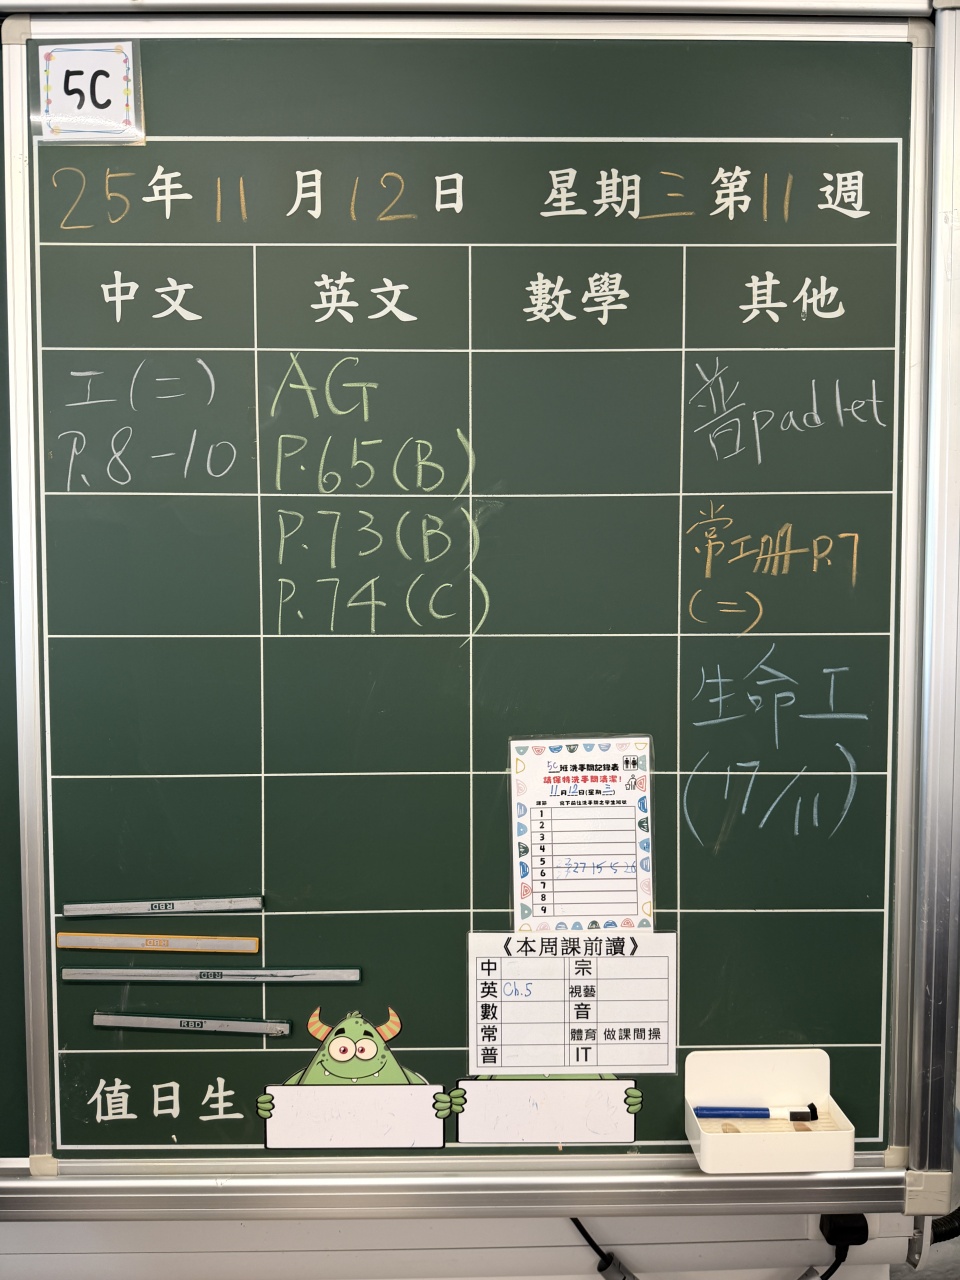 5C
25年11月12日 星期三第11週
中文 英文 數學 其他
工(二)
P.8-10
AG
P.65(B)
P.73(B)
P.74(C)
普padlet
常工冊P.7
(二)
生命工
(17/11)
5C班洗手間記錄表
請保持洗手間清潔!
11月12日(星期三)
課節
1
2
3
4
5
6 27 15 5 26
7
8
9
RBD
RBD
RBD
RBD
《本周課前讀》
中 宗
英 Ch.5 視藝
數 音
常 體育 做課間操
普 IT
值日生